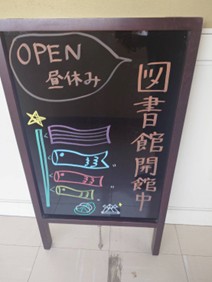 OPEN
昼休み
図書館開館中